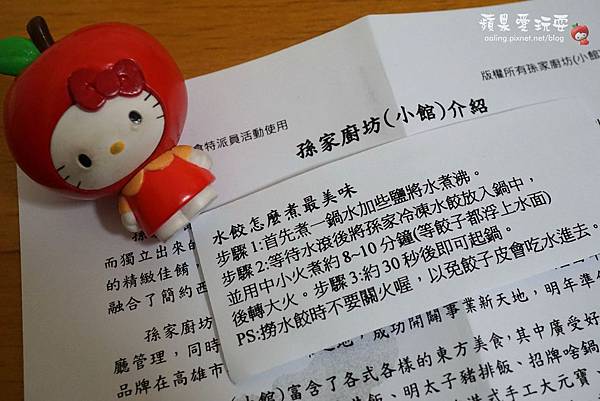 蘋果愛玩耍
aaling.pixnet.net/blog
版權所有孫家廚坊(小館
會特派員活動使用
孫家廚坊(小館)介紹
水餃怎麼煮最美味
步驟1:首先煮一鍋水加些鹽將水煮沸。
步驟2:等待水滾後將孫家冷凍水餃放入鍋中,
並用中小火煮約8~10分鐘(等餃子都浮上水面)
後轉大火。步驟3:約30秒後即可起鍋。
PS:撈水餃時不要關火喔,以免餃子皮會吃水進去。
而獨立出來的
的精緻佳餚
融合了簡約西
孫家廚坊
成功開闢事業新天地,明年準
廳管理,同時
品牌在高雄市
(小館)富含了各式各樣的東方美食,其中廣受好
飯、明太子豬排飯、招牌嗆鍋
手工大元寶、